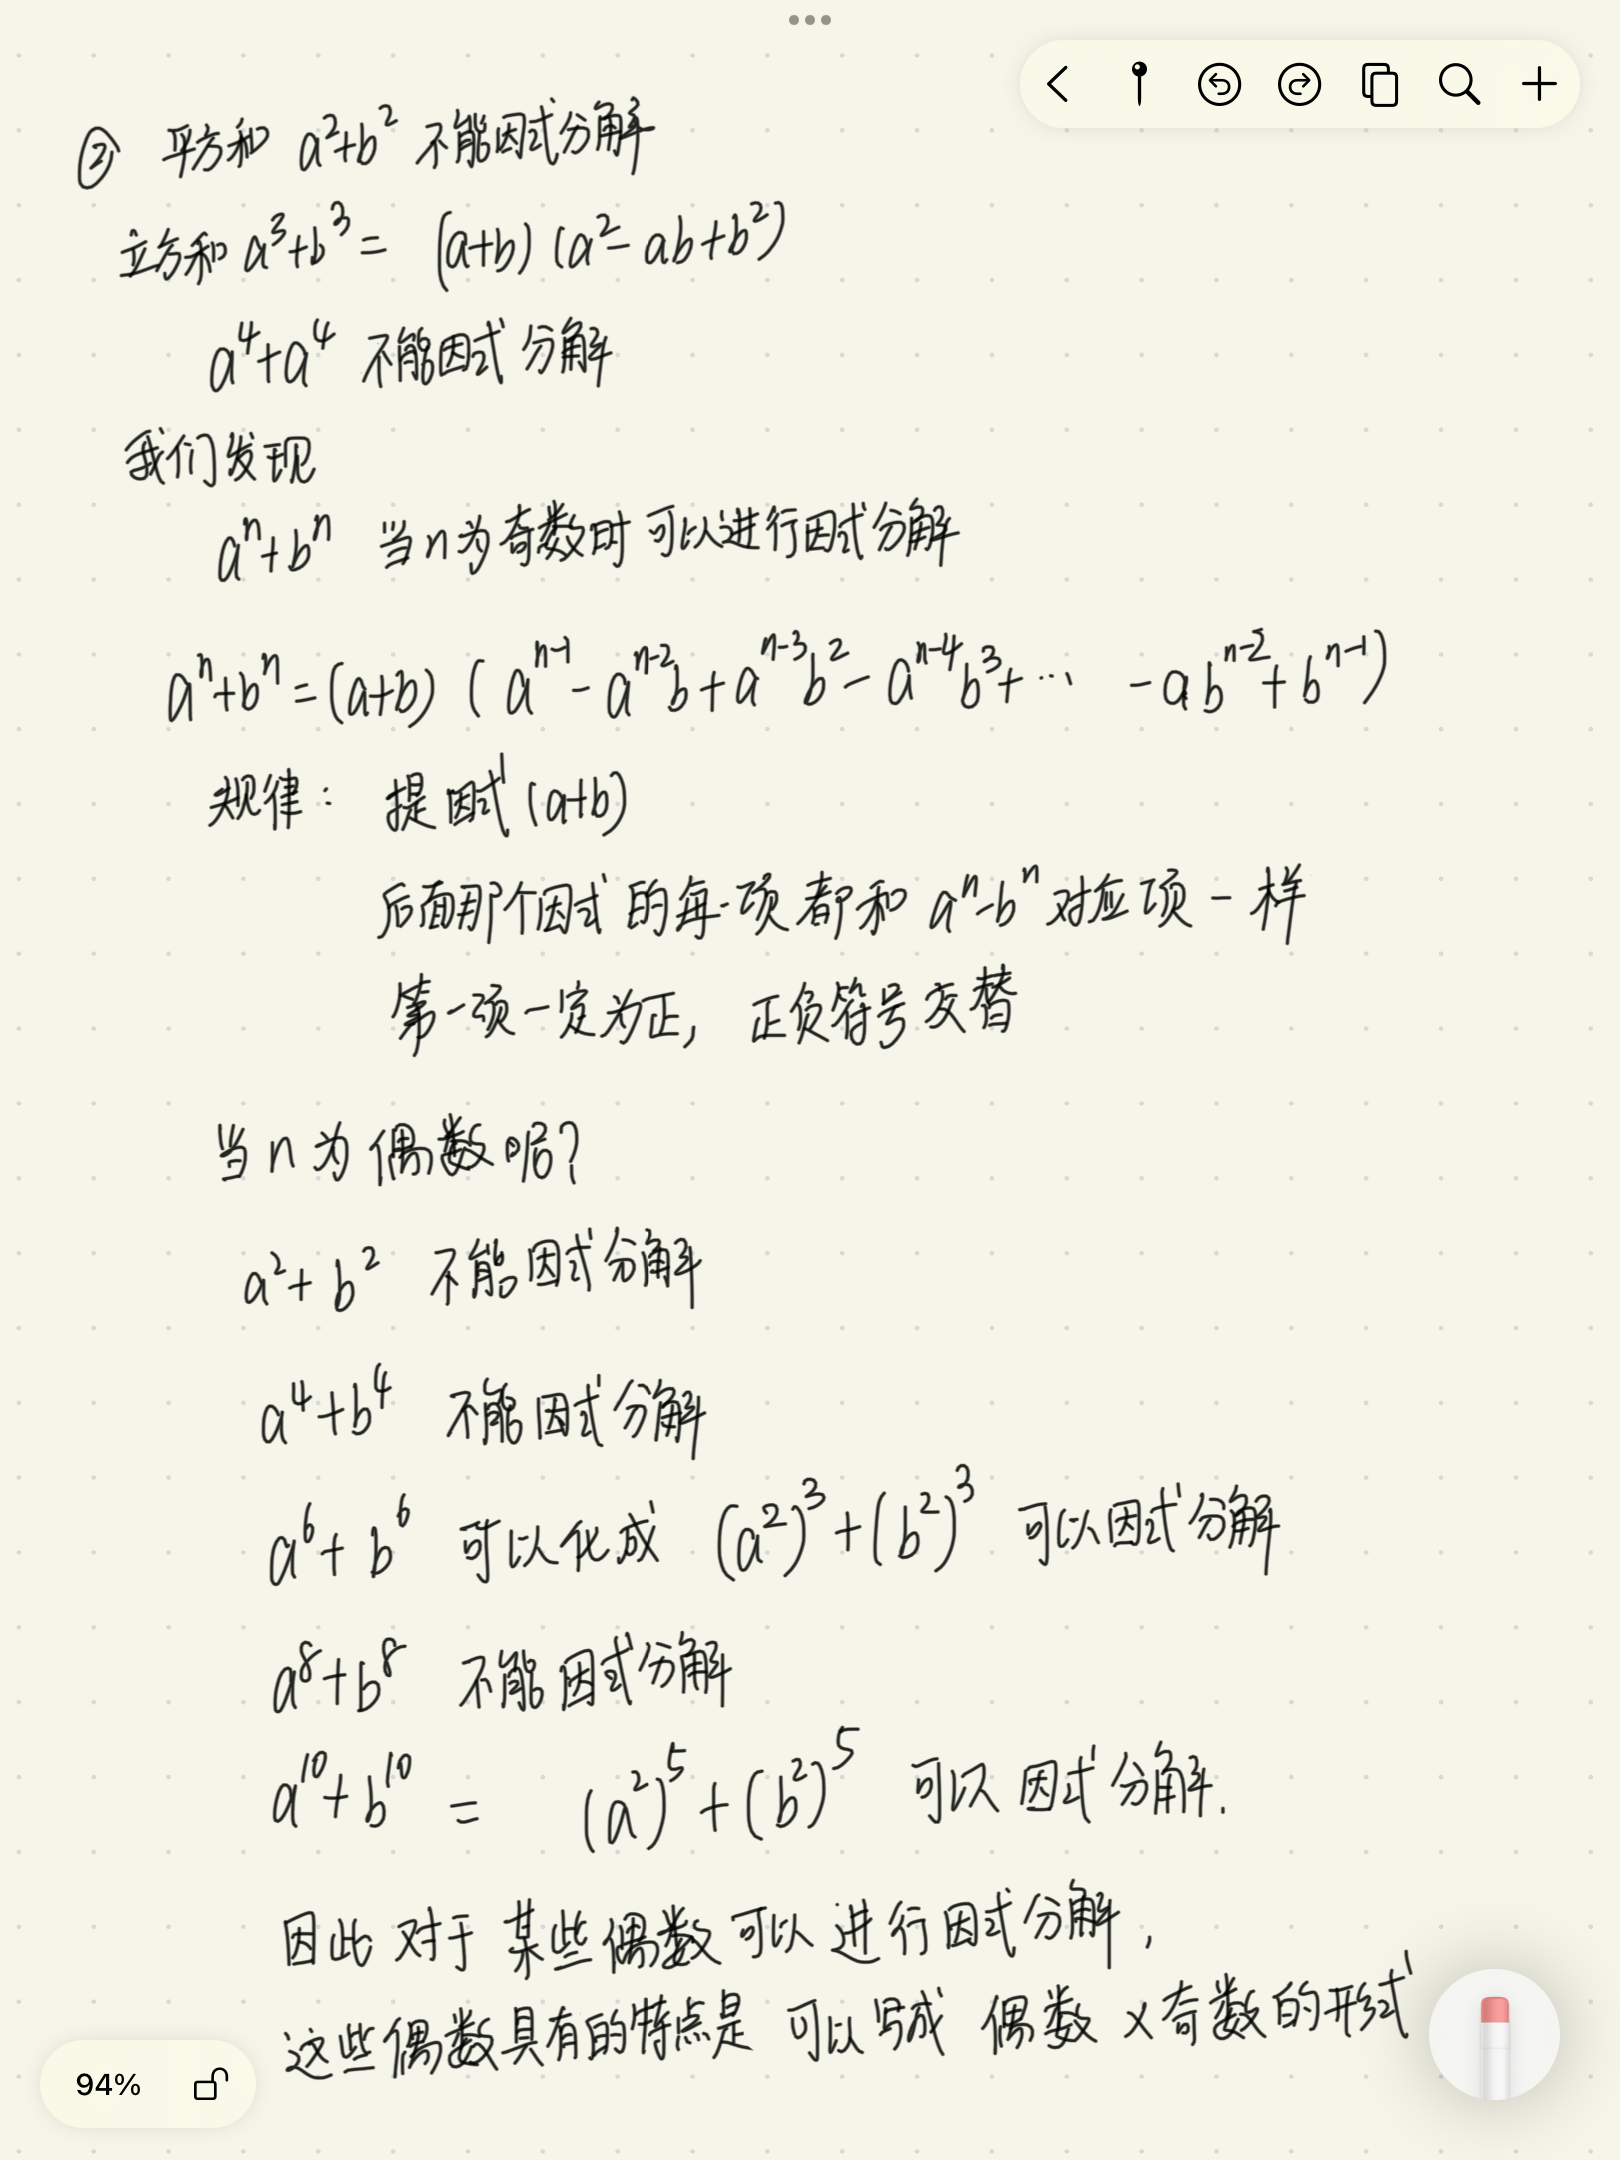 ② 平方和 a²+b² 不能因式分解
立方和 a³+b³= (a+b)(a²-ab+b²)
a⁴+a⁴ 不能因式分解
我们发现
aⁿ+bⁿ 当n为奇数时 可以进行因式分解
aⁿ+bⁿ=(a+b)(aⁿ⁻¹-aⁿ⁻²b+aⁿ⁻³b²-aⁿ⁻⁴b³+… -abⁿ⁻²+bⁿ⁻¹)
规律: 提因式(a+b)
后面那个因式的每一项都和aⁿ-bⁿ对应项一样
第一项一定为正, 正负符号交替
当n为偶数呢?
a²+b² 不能因式分解
a⁴+b⁴ 不能因式分解
a⁶+b⁶ 可以化成 (a²)³+(b²)³ 可以因式分解
a⁸+b⁸ 不能因式分解
a¹⁰+b¹⁰ = (a²)⁵+(b²)⁵ 可以因式分解.
因此对于某些偶数可以进行因式分解,
这些偶数具有的特点是 可以写成 偶数×奇数的形式
94%